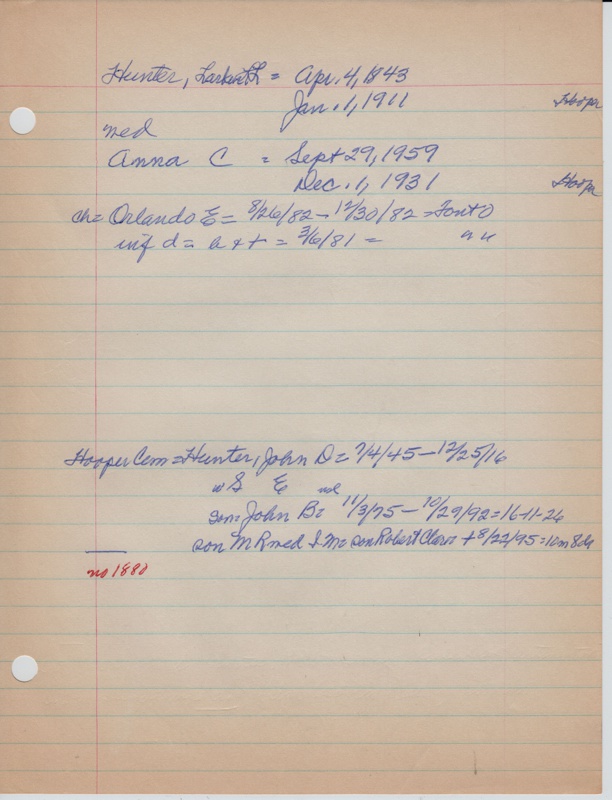 Hunter, = Apr. 4, 1843
Jan. 1, 1911 Hooper
med
Anna C = Sept 29, 1959
Dec. 1, 1931 Hooper
ch = Orlando E = 8/26/82 - 12/30/82 =
inf d = b + t = 3/6/81 = " "
Hooper Cem = Hunter, John D = 7/4/45 - 12/25/16
w S E
son = John B = 11/3/75 - 10/29/92 = 16-11-26
son M R med I M = son Robert + 8/22/95 = 10m 8da
no 1880